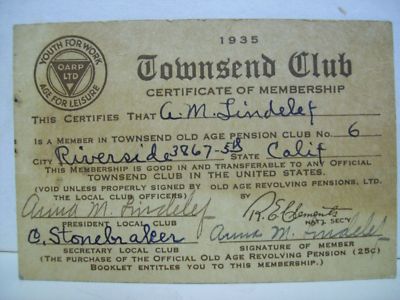 1935
YOUTH FOR WORK
OARP
LTD
AGE FOR LEISURE
Townsend Club
CERTIFICATE OF MEMBERSHIP
THIS CERTIFIES THAT A. M. Lindelef
IS A MEMBER IN TOWNSEND OLD AGE PENSION CLUB NO. 6
CITY Riverside 3867-5th STATE Calif
THIS MEMBERSHIP IS GOOD IN AND TRANSFERABLE TO ANY OFFICIAL
TOWNSEND CLUB IN THE UNITED STATES.
(VOID UNLESS PROPERLY SIGNED BY OLD AGE REVOLVING PENSIONS, LTD.
THE LOCAL CLUB OFFICERS) BY
Anna M. Lindelef R. E. Clements
PRESIDENT LOCAL CLUB NAT'L SECY
C. Stonebraker Anna M. Lindelef
SECRETARY LOCAL CLUB SIGNATURE OF MEMBER
(THE PURCHASE OF THE OFFICIAL OLD AGE REVOLVING PENSION (25¢)
BOOKLET ENTITLES YOU TO THIS MEMBERSHIP.)